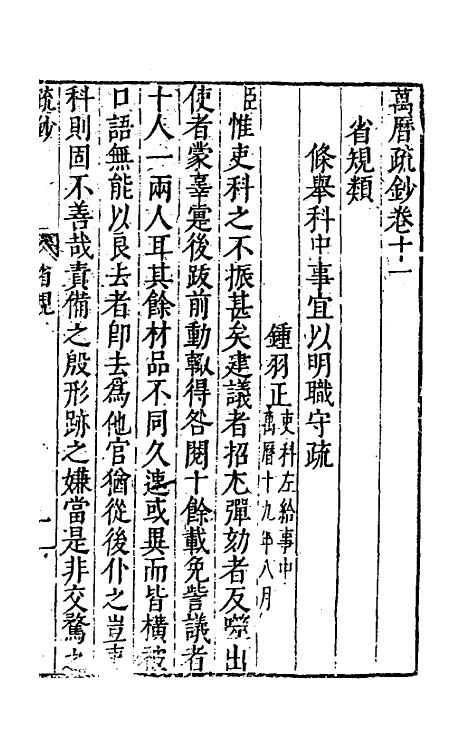 萬曆疏鈔卷十一
省規類
條舉科中事宜以明職守疏
鍾羽正吏科左給事中萬曆十九年八月
臣惟吏科之不振甚矣建議者招尤彈劾者反噬出
使者蒙辜寔後跋前動輒得咎閱十餘載免訾議者
十人一兩人耳其餘材品不同久速或異而皆橫被
口語無能以良去者卽去為他官猶從後仆之豈吏
科則固不善哉責備之殷形跡之嫌當是非交騖之
疏鈔 省規 一